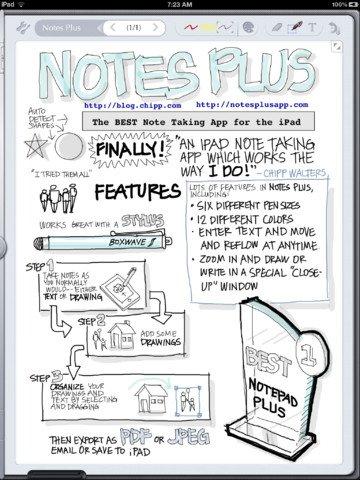 iPad
7:23 AM
Notes Plus
(1/1)
T
NOTES PLUS
http://blog.chipp.com http://notesplusapp.com
AUTO
DETECT
SHAPES
The BEST Note Taking App for the iPad
FINALLY!
"AN IPAD NOTE TAKING
APP WHICH WORKS THE
WAY I DO!"
-CHIPP WALTERS
"I TRIED THEM ALL"
FEATURES
LOTS OF FEATURES IN NOTES PLUS,
INCLUDING:
• SIX DIFFERENT PEN SIZES
• 12 DIFFERENT COLORS
• ENTER TEXT AND MOVE
AND REFLOW AT ANYTIME
• ZOOM IN AND DRAW OR
WRITE IN A SPECIAL "CLOSE-
UP" WINDOW
WORKS GREAT WITH A STYLUS
BOXWAVE
STEP 1
TAKE NOTES AS
YOU NORMALLY
WOULD-- EITHER
TEXT OR DRAWING
STEP 2
ADD SOME
DRAWINGS
STEP 3
ORGANIZE YOUR
DRAWINGS AND
TEXT BY SELECTING
AND DRAGGING
THEN EXPORT AS PDF OR JPEG
EMAIL OR SAVE TO iPAD
1
BEST
NOTEPAD
PLUS